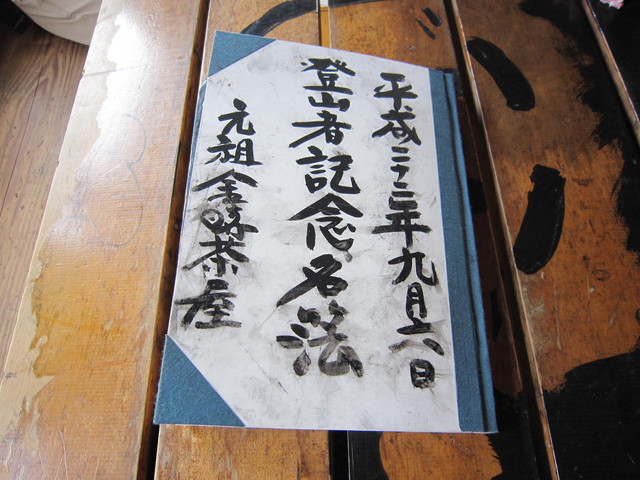 平成二十二年九月六日
登山者記念名簿
元祖金時茶屋